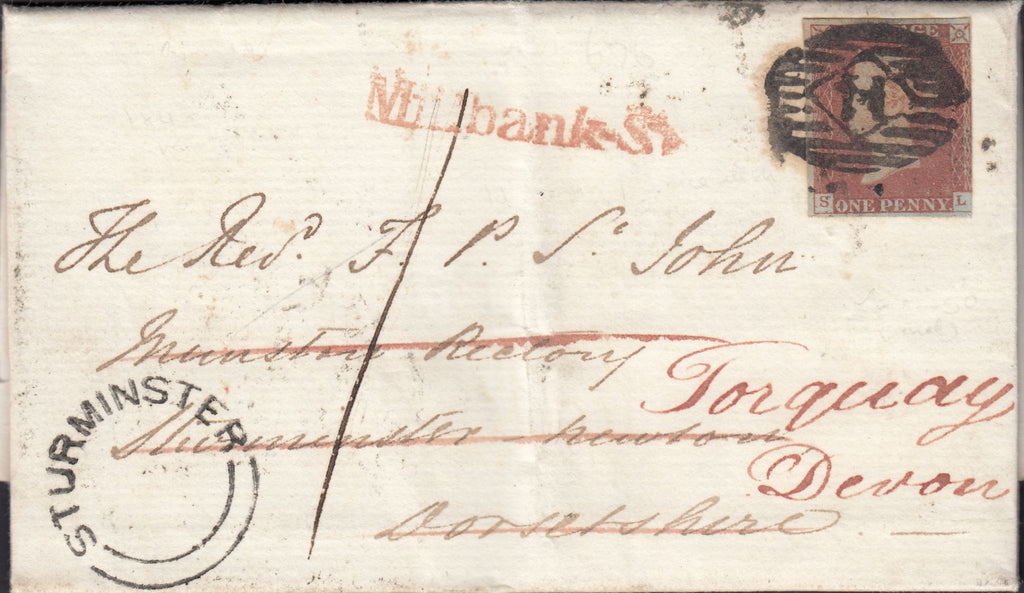 Millbank-St
GE
1
S ONE PENNY L
The Revd. F. P. St John
Manston Rectory
Sturminster Newton
Dorsetshire
Torquay
Devon
STURMINSTER